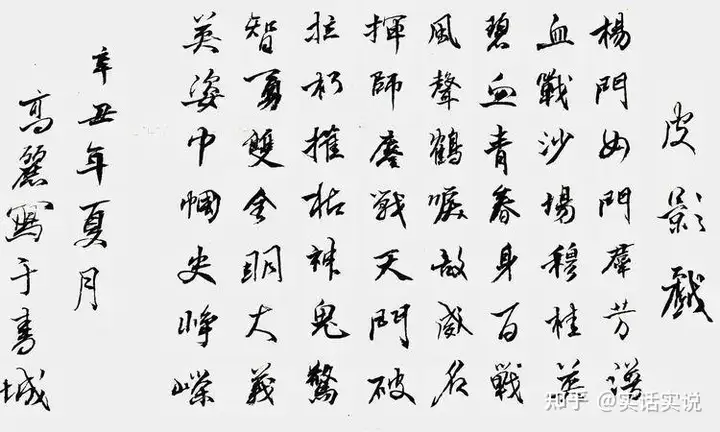 皮影戲
楊門女門羣芳譜
血戰沙場穆桂英
碧血青春身百戰
風聲鶴唳敵威名
揮師鏖戰天門破
拉朽摧枯神鬼驚
智勇雙全明大義
英姿巾幗史崢嶸
辛丑年夏月
高麗寫于書城
知乎 @实话实说